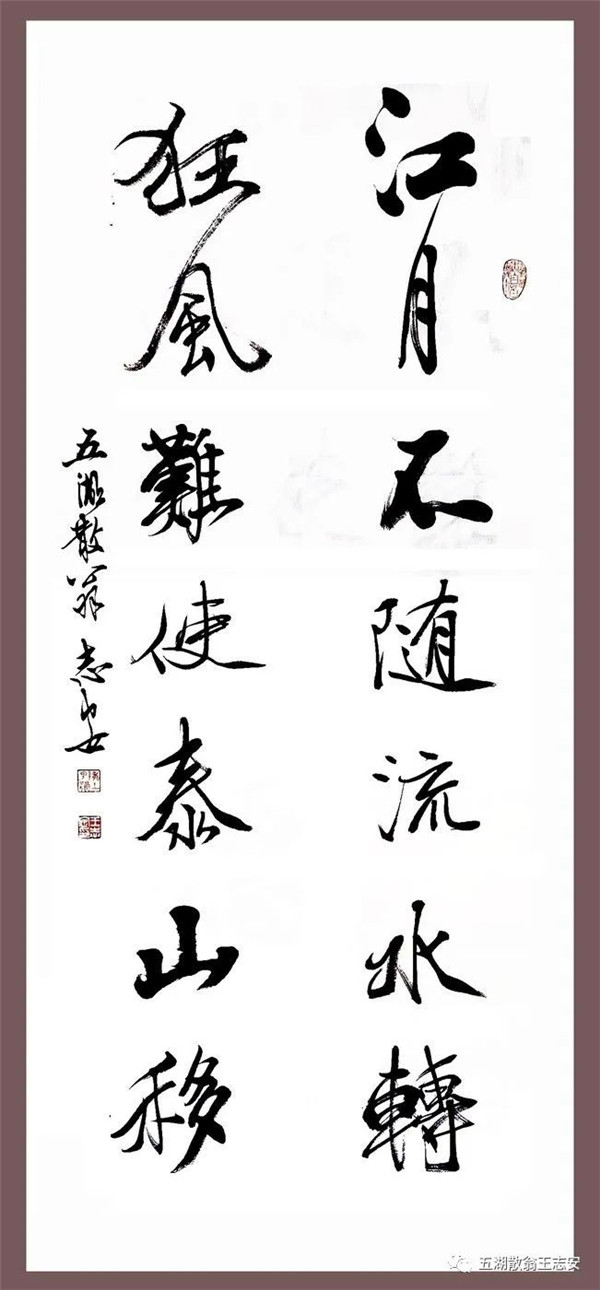 江月不随流水轉
狂風難使泰山移
五湖散翁志安
五湖散翁王志安